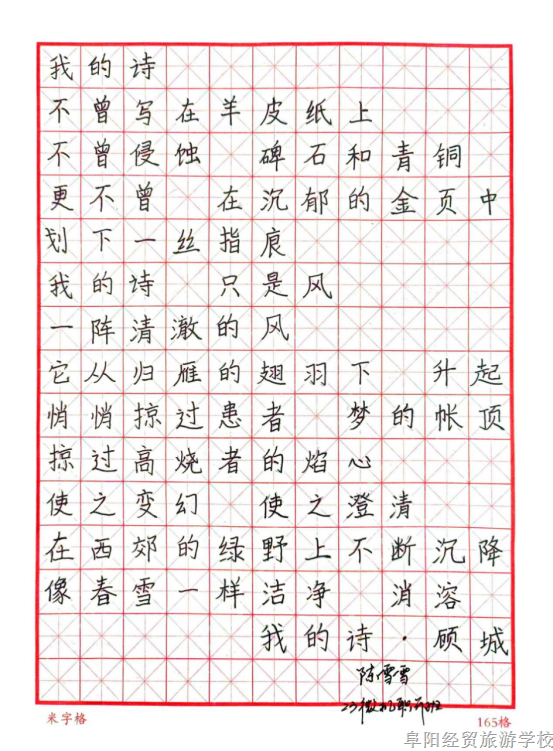 我的诗
不曾写在羊皮纸上
不曾侵蚀 碑石和青铜
更不曾 在沉郁的金页中
划下一丝指痕
我的诗 只是风
一阵清澈的风
它从归雁的翅羽下 升起
悄悄掠过患者 梦的帐顶
掠过高烧者的焰心
使之变幻 使之澄清
在西郊的绿野上不断沉降
像春雪一样洁净 消溶
我的诗·顾城
陈雪雪
23微机职师班
米字格 165格
阜阳经贸旅游学校